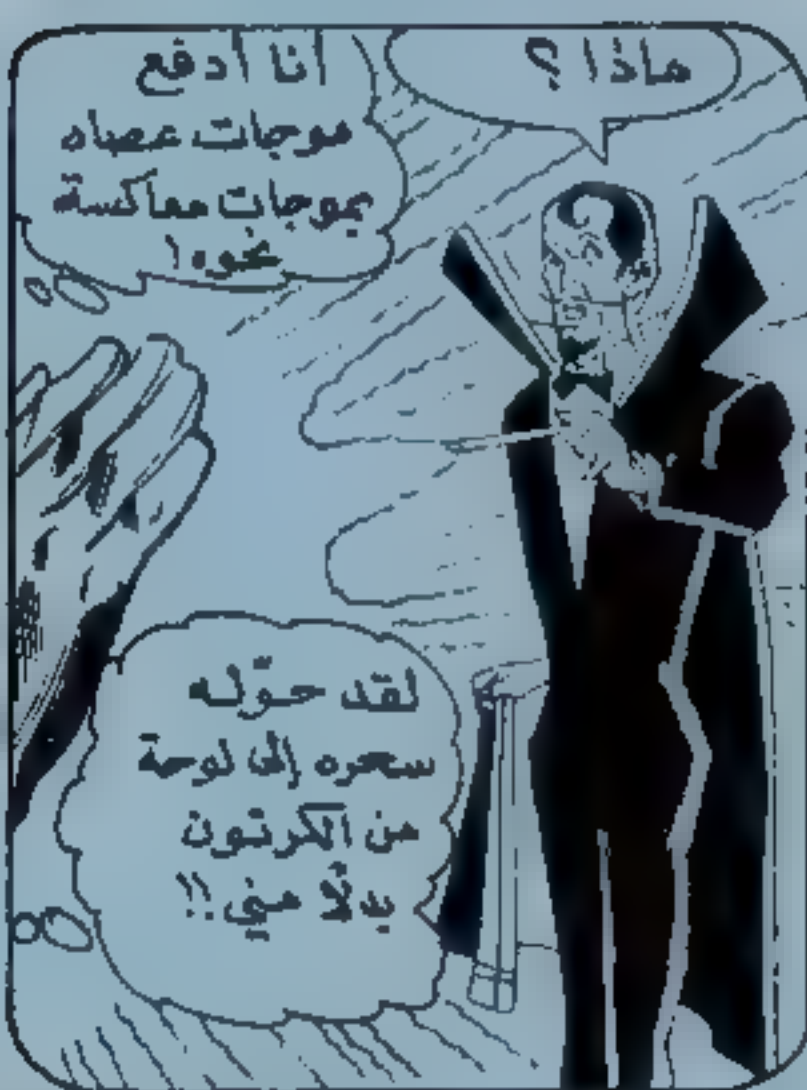 ماذا ؟
أنا أدفع
موجات عصاه
بموجات معاكسة
نحوه !
لقد حوّله
سحره إلى لوحة
من الكرتون
بدلًا مني !!